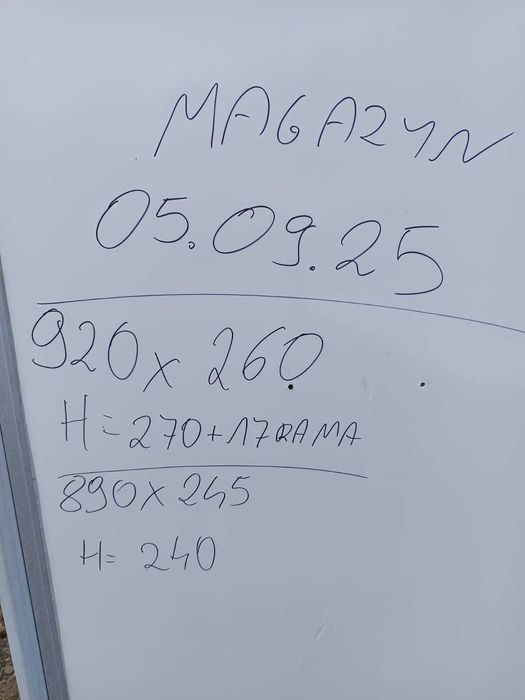 MAGAZYN
05.09.25
920 x 260
H = 270 + 17 RAMA
890 x 245
H = 240